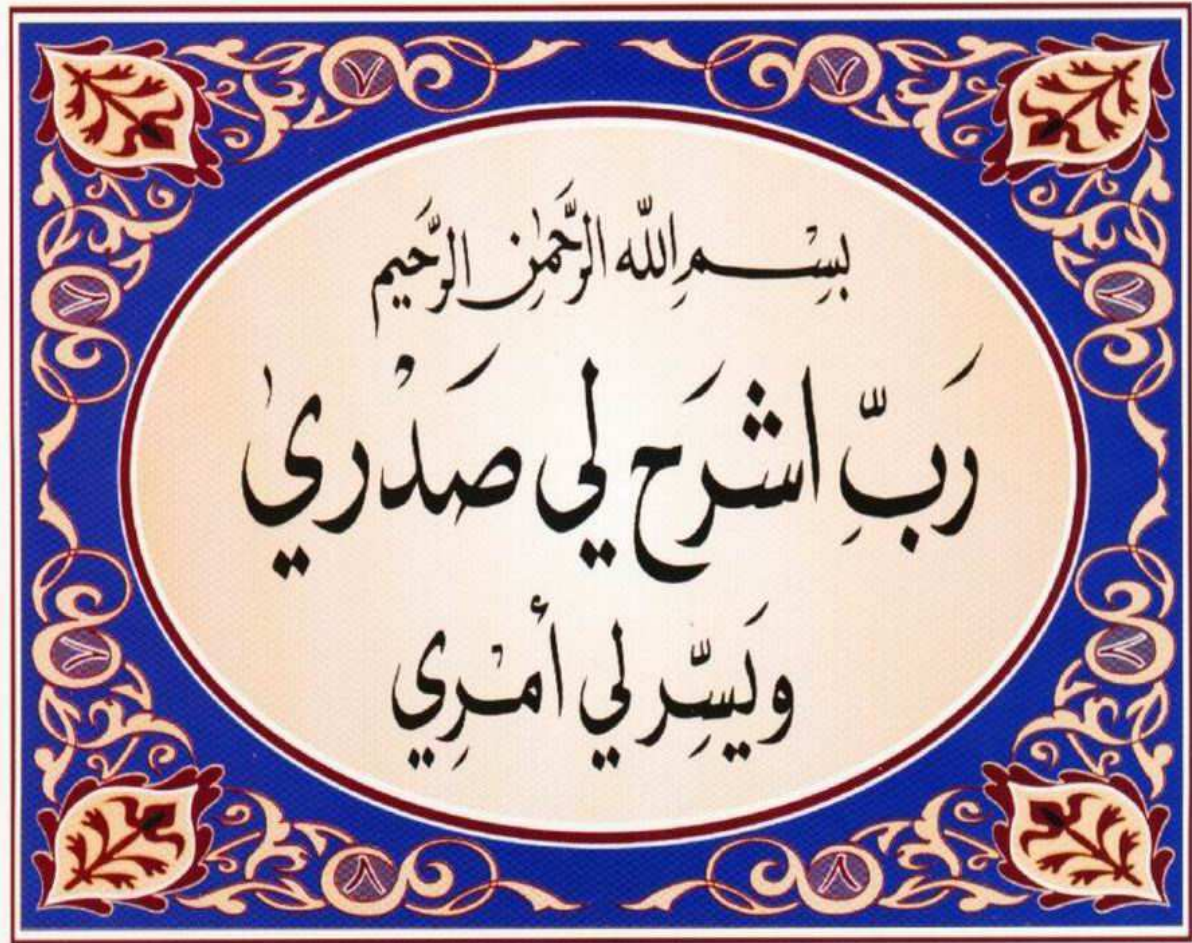 بِسْمِ اللّٰه الرَّحْمٰنِ الرَّحيم
رَبِّ اشْرَح لي صَدْري
وَيَسِّر لي أمْرِي